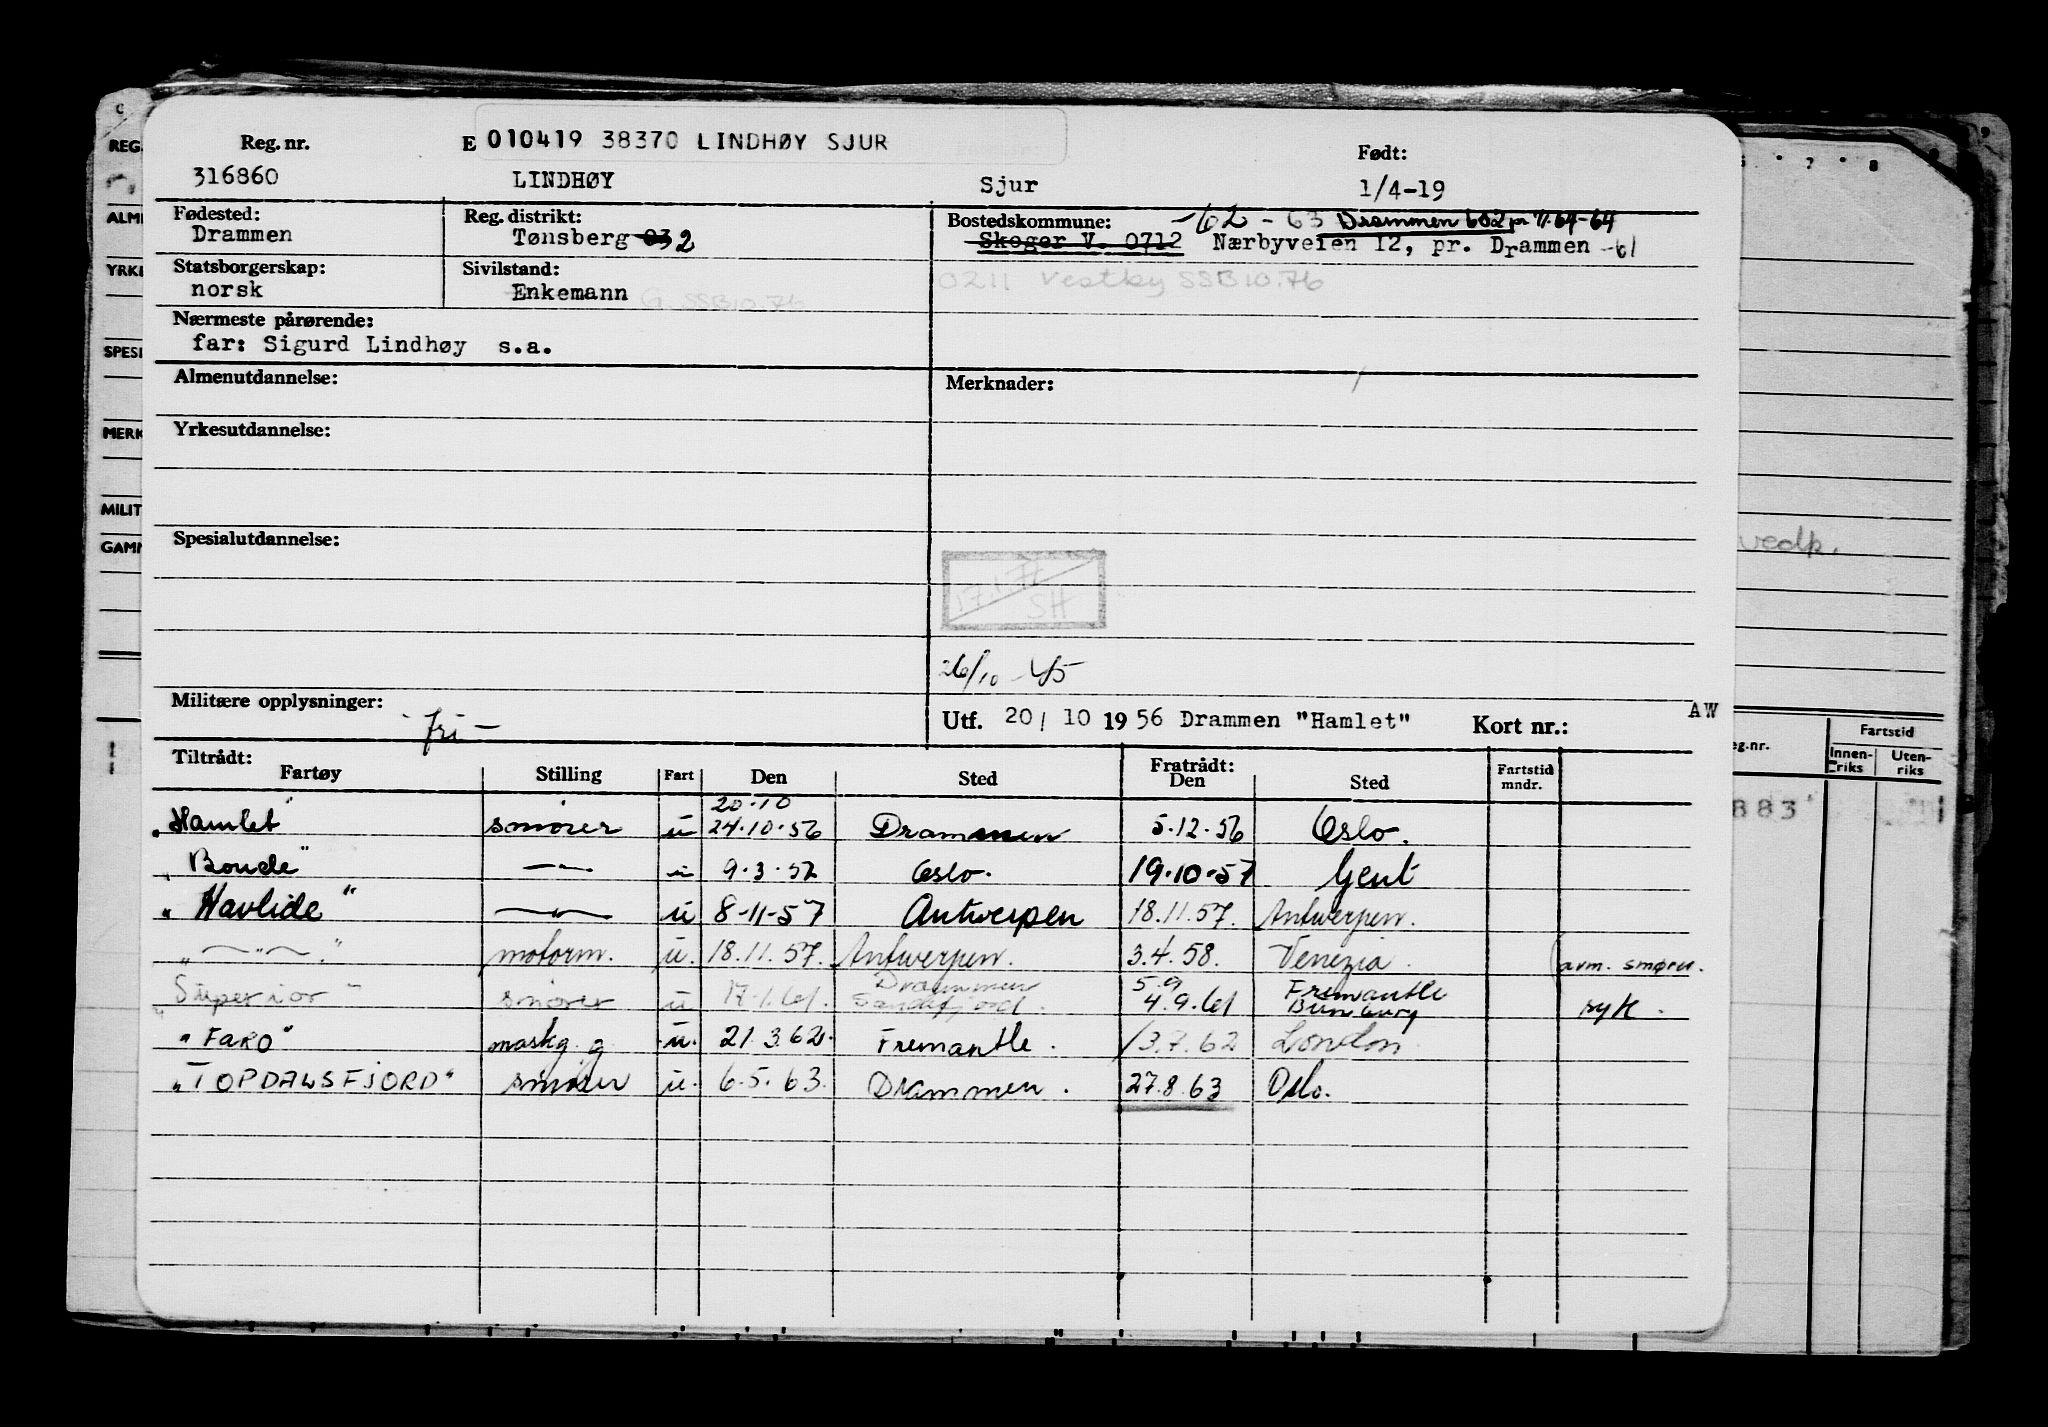 Reg. nr.
E 010419 38370 LINDHØY SJUR
Født:
316860 LINDHØY Sjur 1/4-19
Fødested:
Drammen
Reg. distrikt:
Tønsberg 03 2
Bostedskommune: -62 - 63 Drammen 602 pr 1/1.64-64
Skoger V. 0712 Nærbyveien 12, pr. Drammen -61
Statsborgerskap:
norsk
Sivilstand:
Enkemann G. SSB 10.76
0211 Vestby SSB 10.76
Nærmeste pårørende:
far: Sigurd Lindhøy s.a.
Almenutdannelse:
Merknader:
Yrkesutdannelse:
Spesialutdannelse:
17.1.77
SH
26/10 - 45
Militære opplysninger:
- fri -
Utf. 20/ 10 1956 Drammen "Hamlet" Kort nr.: AW
Tiltrådt:
Fartøy Stilling Fart Den Sted Fratrådt: Den Sted Fartstid mndr.
20.10
"Hamlet" smører u 24.10.56 Drammen 5.12.56 Oslo.
"Bonde" —"— u 9.3.57 Oslo. 19.10.57 Gent
"Havlide" —"— u 8-11-57 Antwerpen 18.11.57. Antwerpen.
"—"—" motorm. u. 18.11.57. Antwerpen. 3.4.58. Venezia. (avm. smører.
Drammen 5.9 Fremantle
"Superior" smører u 17.1.61. Sandefjord. 4.9.61 Bunbury syk.
"FARO" maskg. g. u. 21.3.62. Fremantle. 13.7.62 London.
"TOPDALSFJORD" smører u. 6.5.63. Drammen. 27.8.63 Oslo.
REG.
ALM
YRKE
SPESI
MERK
MILIT
GAMM
7 8 9
vedk.
eg.nr.
Fartstid
Innen-
riks
Uten-
riks
883